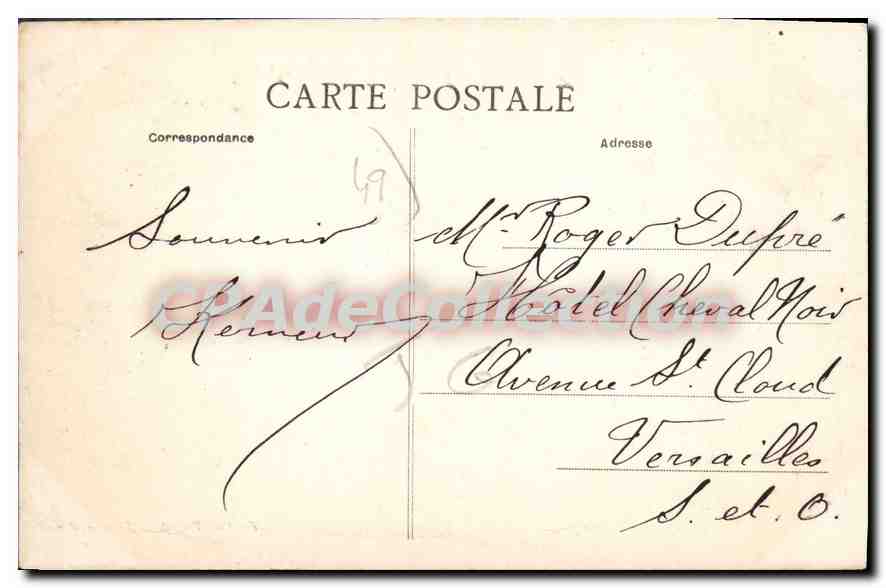 CARTE POSTALE
Correspondance
Adresse
49
Souvenir
Mr Roger Dupré
Hôtel Cheval Noir
Avenue St. Cloud
Versailles
S. et. O.
CPAdeCollection